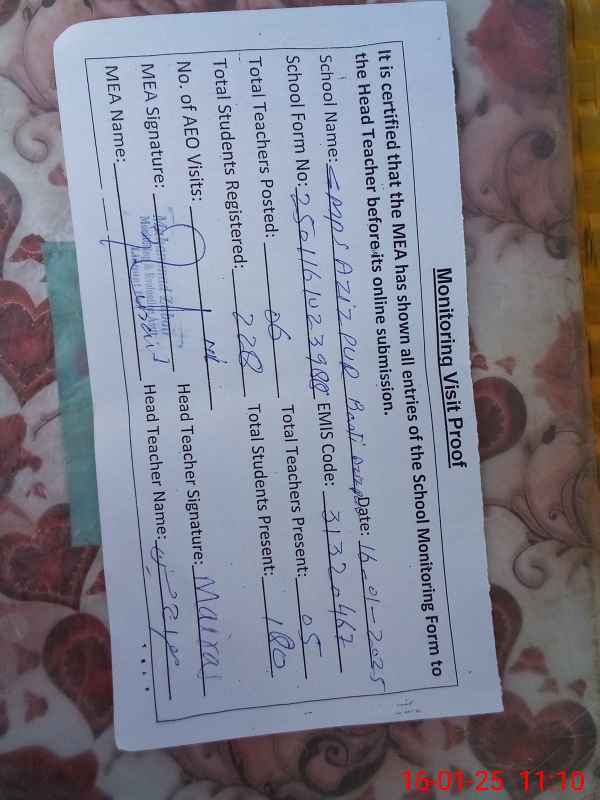 Monitoring Visit Proof
It is certified that the MEA has shown all entries of the School Monitoring Form to
the Head Teacher before its online submission.
School Name: GMPS AZIZ PUR Basti Date: 16-01-2025
School Form No: EMIS Code: 31320467
Total Teachers Posted: 06 Total Teachers Present: 05
Total Students Registered: 228 Total Students Present: 180
No. of AEO Visits: Nil
MEA Signature: Head Teacher Signature: Maira
MEA Name: Head Teacher Name:
16-01-25 11:10